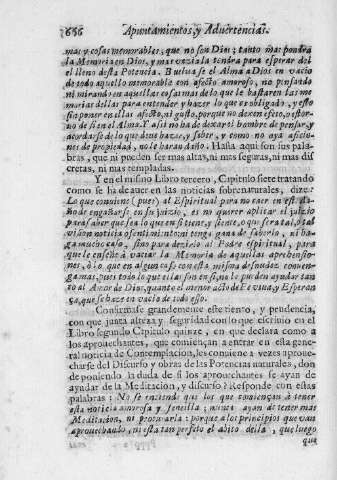 656 Apuntamientos, y Aduertencias.
mas, y cosas memorables, que no son Dios; tanto mas pondrà
la Memoria en Dios, y mas vazia la tendrà para esperar del
el lleno desta Potencia. Buelua se el Alma à Dios en vacio
de todo aquello memorable con afecto amoroso, no pensando
ni mirando en aquellas cosas mas de lo que le bastaren las me
morias dellas para entender, y hazer lo que es obligado, y esto
sin poner en ellas afecto, ni gusto, porque no dexen efeto, o estor-
no de si en el Alma. Y assi no ha de dexar el hombre de pensar, y
acordarse de lo que deue hazer, y saber, y como no aya aficio-
nes de propiedad, no le haran daño. Hasta aqui son sus pala-
bras, que ni pueden ser mas altas, ni mas seguras, ni mas dis
cretas, ni mas templadas.
Y en el mismo Libro tercero, Capitulo siete tratando
como se ha de auer en las noticias sobrenaturales, dize:
Lo que conuiene (pues) al Espiritual para no caer en este da-
ño de engañarse en su juizio, es no querer aplicar el juizio
para saber que sea lo que en si tiene, y siente, o que serà tal, o tal
vision noticia o sentimiento, ni tenga gana de saberlo, ni ha-
ga mucho caso, sino para dezirlo al Padre espiritual, para
que le enseñe à vaciar la Memoria de aquellas aprehensio-
nes, ò lo que en algun caso con esta misma desnudez conuen-
ga mas, pues todo lo que ellas son en si, no le pueden ayudar tan
to al Amor de Dios, quanto el menor acto de Fè viua, y Esperan
ça, que se haze en vacio de todo esso.
Confirmase grandemente este tiento, y prudencia,
con que junta alteza y seguridad con lo que escriuio en el
Libro segundo Capitulo quinze, en que declara como à
los aprouechantes, que comiençan a entrar en esta gene-
ral noticia de Contemplacion, les conuiene à vezes aproue-
charse del Discurso y obras de las Potencias naturales, don
de poniendo la duda de si los aprouechantes se ayan de
ayudar de la Meditacion, y discurso? Responde con estas
palabras: No se entiende que los que comiençan à tener
esta noticia amorosa y sencilla; nunca ayan de tener mas
Meditacion, ni procurarla: porque a los principios que van
aprouechando, ni està tan perfeto el abito della, que luego
que